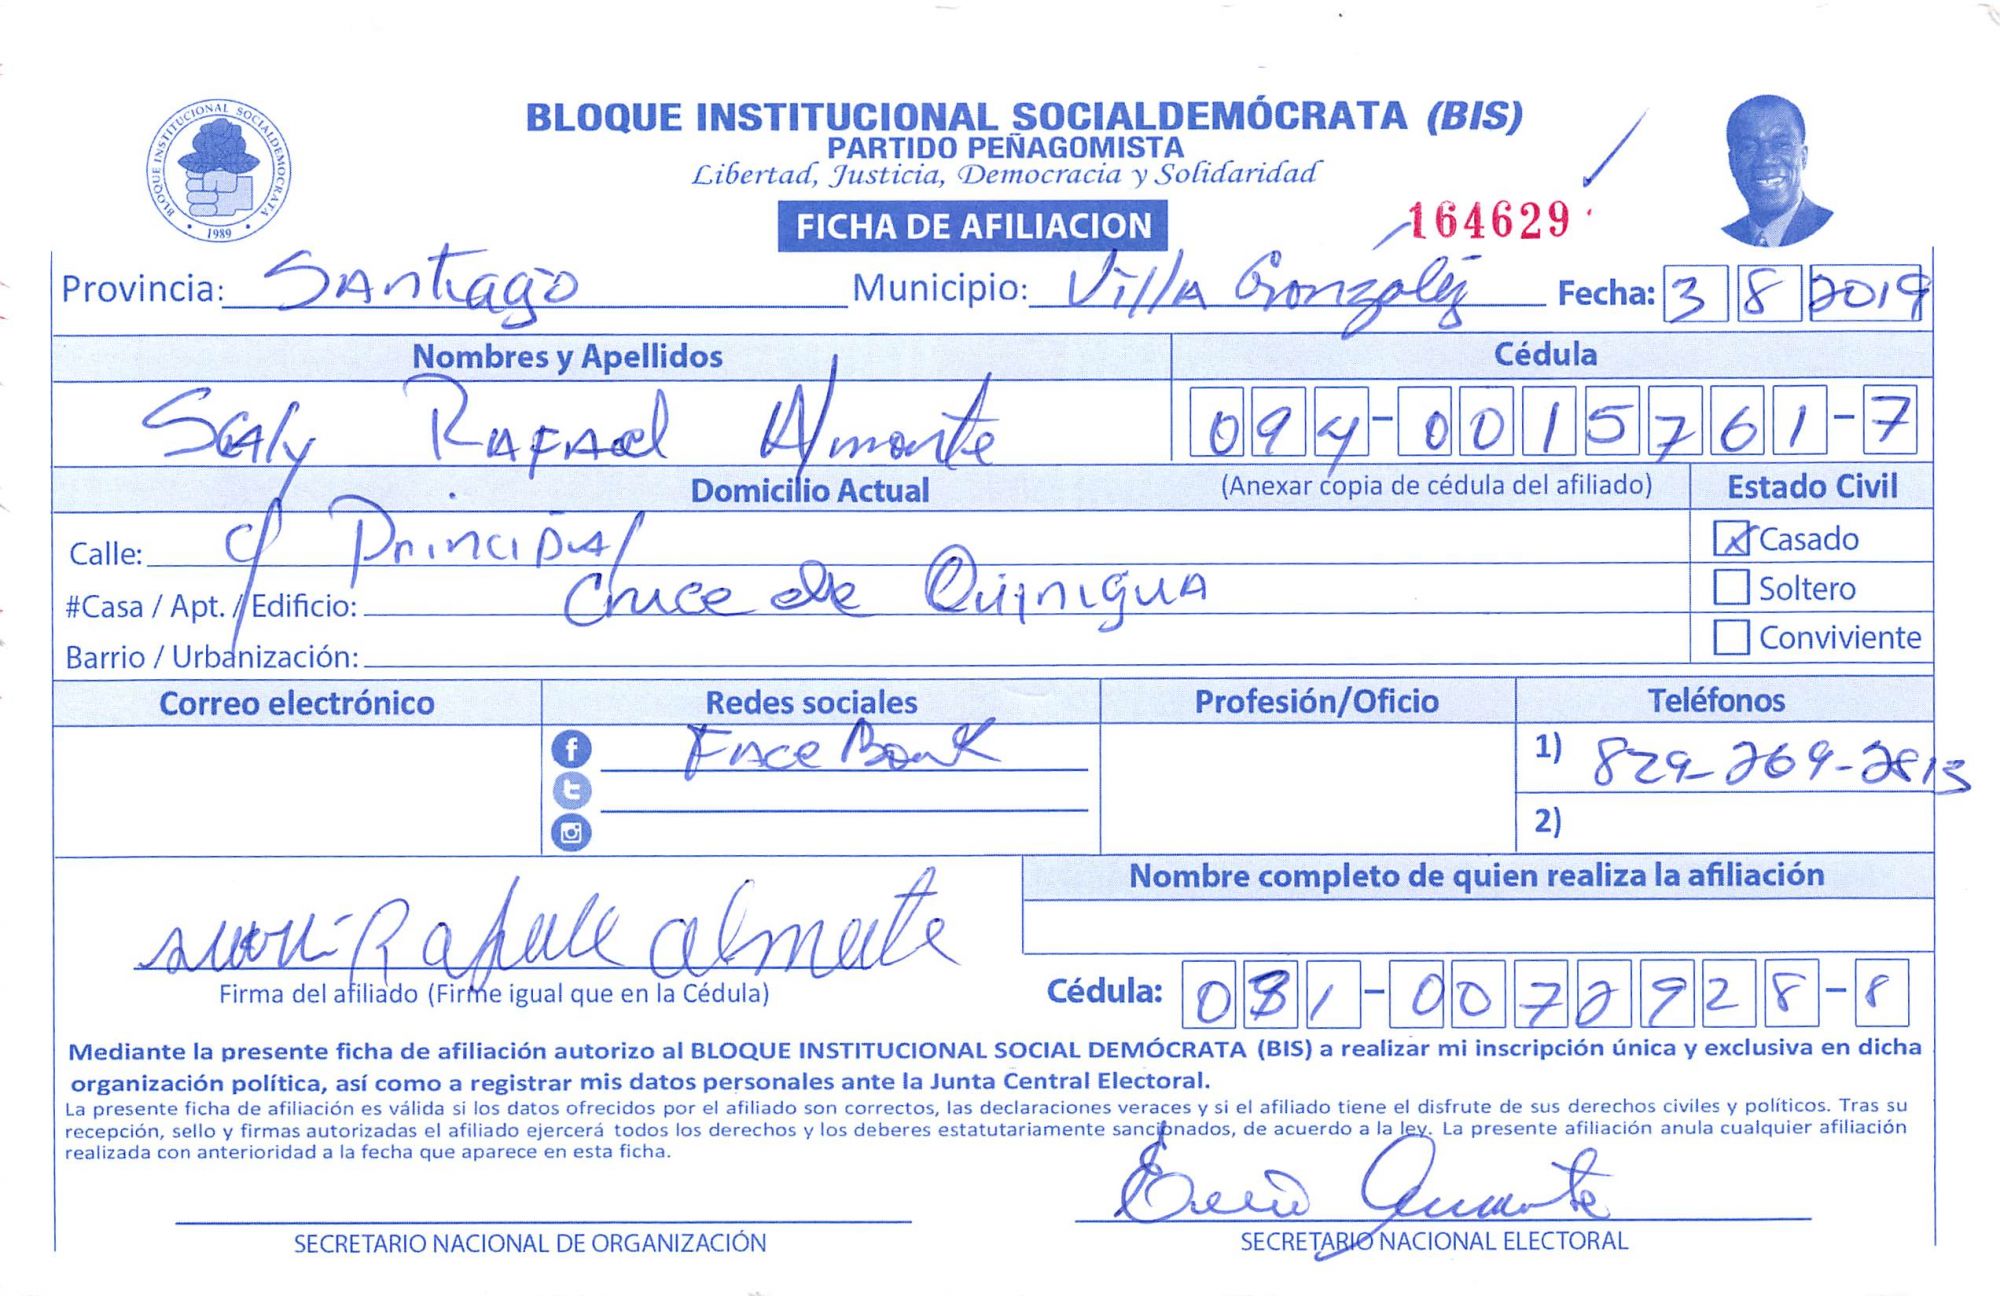 BLOQUE INSTITUCIONAL SOCIALDEMÓCRATA
1989
BLOQUE INSTITUCIONAL SOCIALDEMÓCRATA (BIS)
PARTIDO PEÑAGOMISTA
Libertad, Justicia, Democracia y Solidaridad
FICHA DE AFILIACION
164629
Provincia: Santiago Municipio: Villa González Fecha: 3 8 2019
Nombres y Apellidos Cédula
Rafael Almonte 094-0015761-7
Domicilio Actual (Anexar copia de cédula del afiliado) Estado Civil
Calle: c/ Principal Casado
#Casa / Apt. / Edificio: Cruce de Quinigua Soltero
Barrio / Urbanización: Conviviente
Correo electrónico Redes sociales Profesión/Oficio Teléfonos
FaceBook 1) 829-269-2813
2)
Nombre completo de quien realiza la afiliación
Rafael Almonte
Firma del afiliado (Firme igual que en la Cédula) Cédula: 031-0072928-8
Mediante la presente ficha de afiliación autorizo al BLOQUE INSTITUCIONAL SOCIAL DEMÓCRATA (BIS) a realizar mi inscripción única y exclusiva en dicha
organización política, así como a registrar mis datos personales ante la Junta Central Electoral.
La presente ficha de afiliación es válida si los datos ofrecidos por el afiliado son correctos, las declaraciones veraces y si el afiliado tiene el disfrute de sus derechos civiles y políticos. Tras su
recepción, sello y firmas autorizadas el afiliado ejercerá todos los derechos y los deberes estatutariamente sancionados, de acuerdo a la ley. La presente afiliación anula cualquier afiliación
realizada con anterioridad a la fecha que aparece en esta ficha.
SECRETARIO NACIONAL DE ORGANIZACIÓN SECRETARIO NACIONAL ELECTORAL